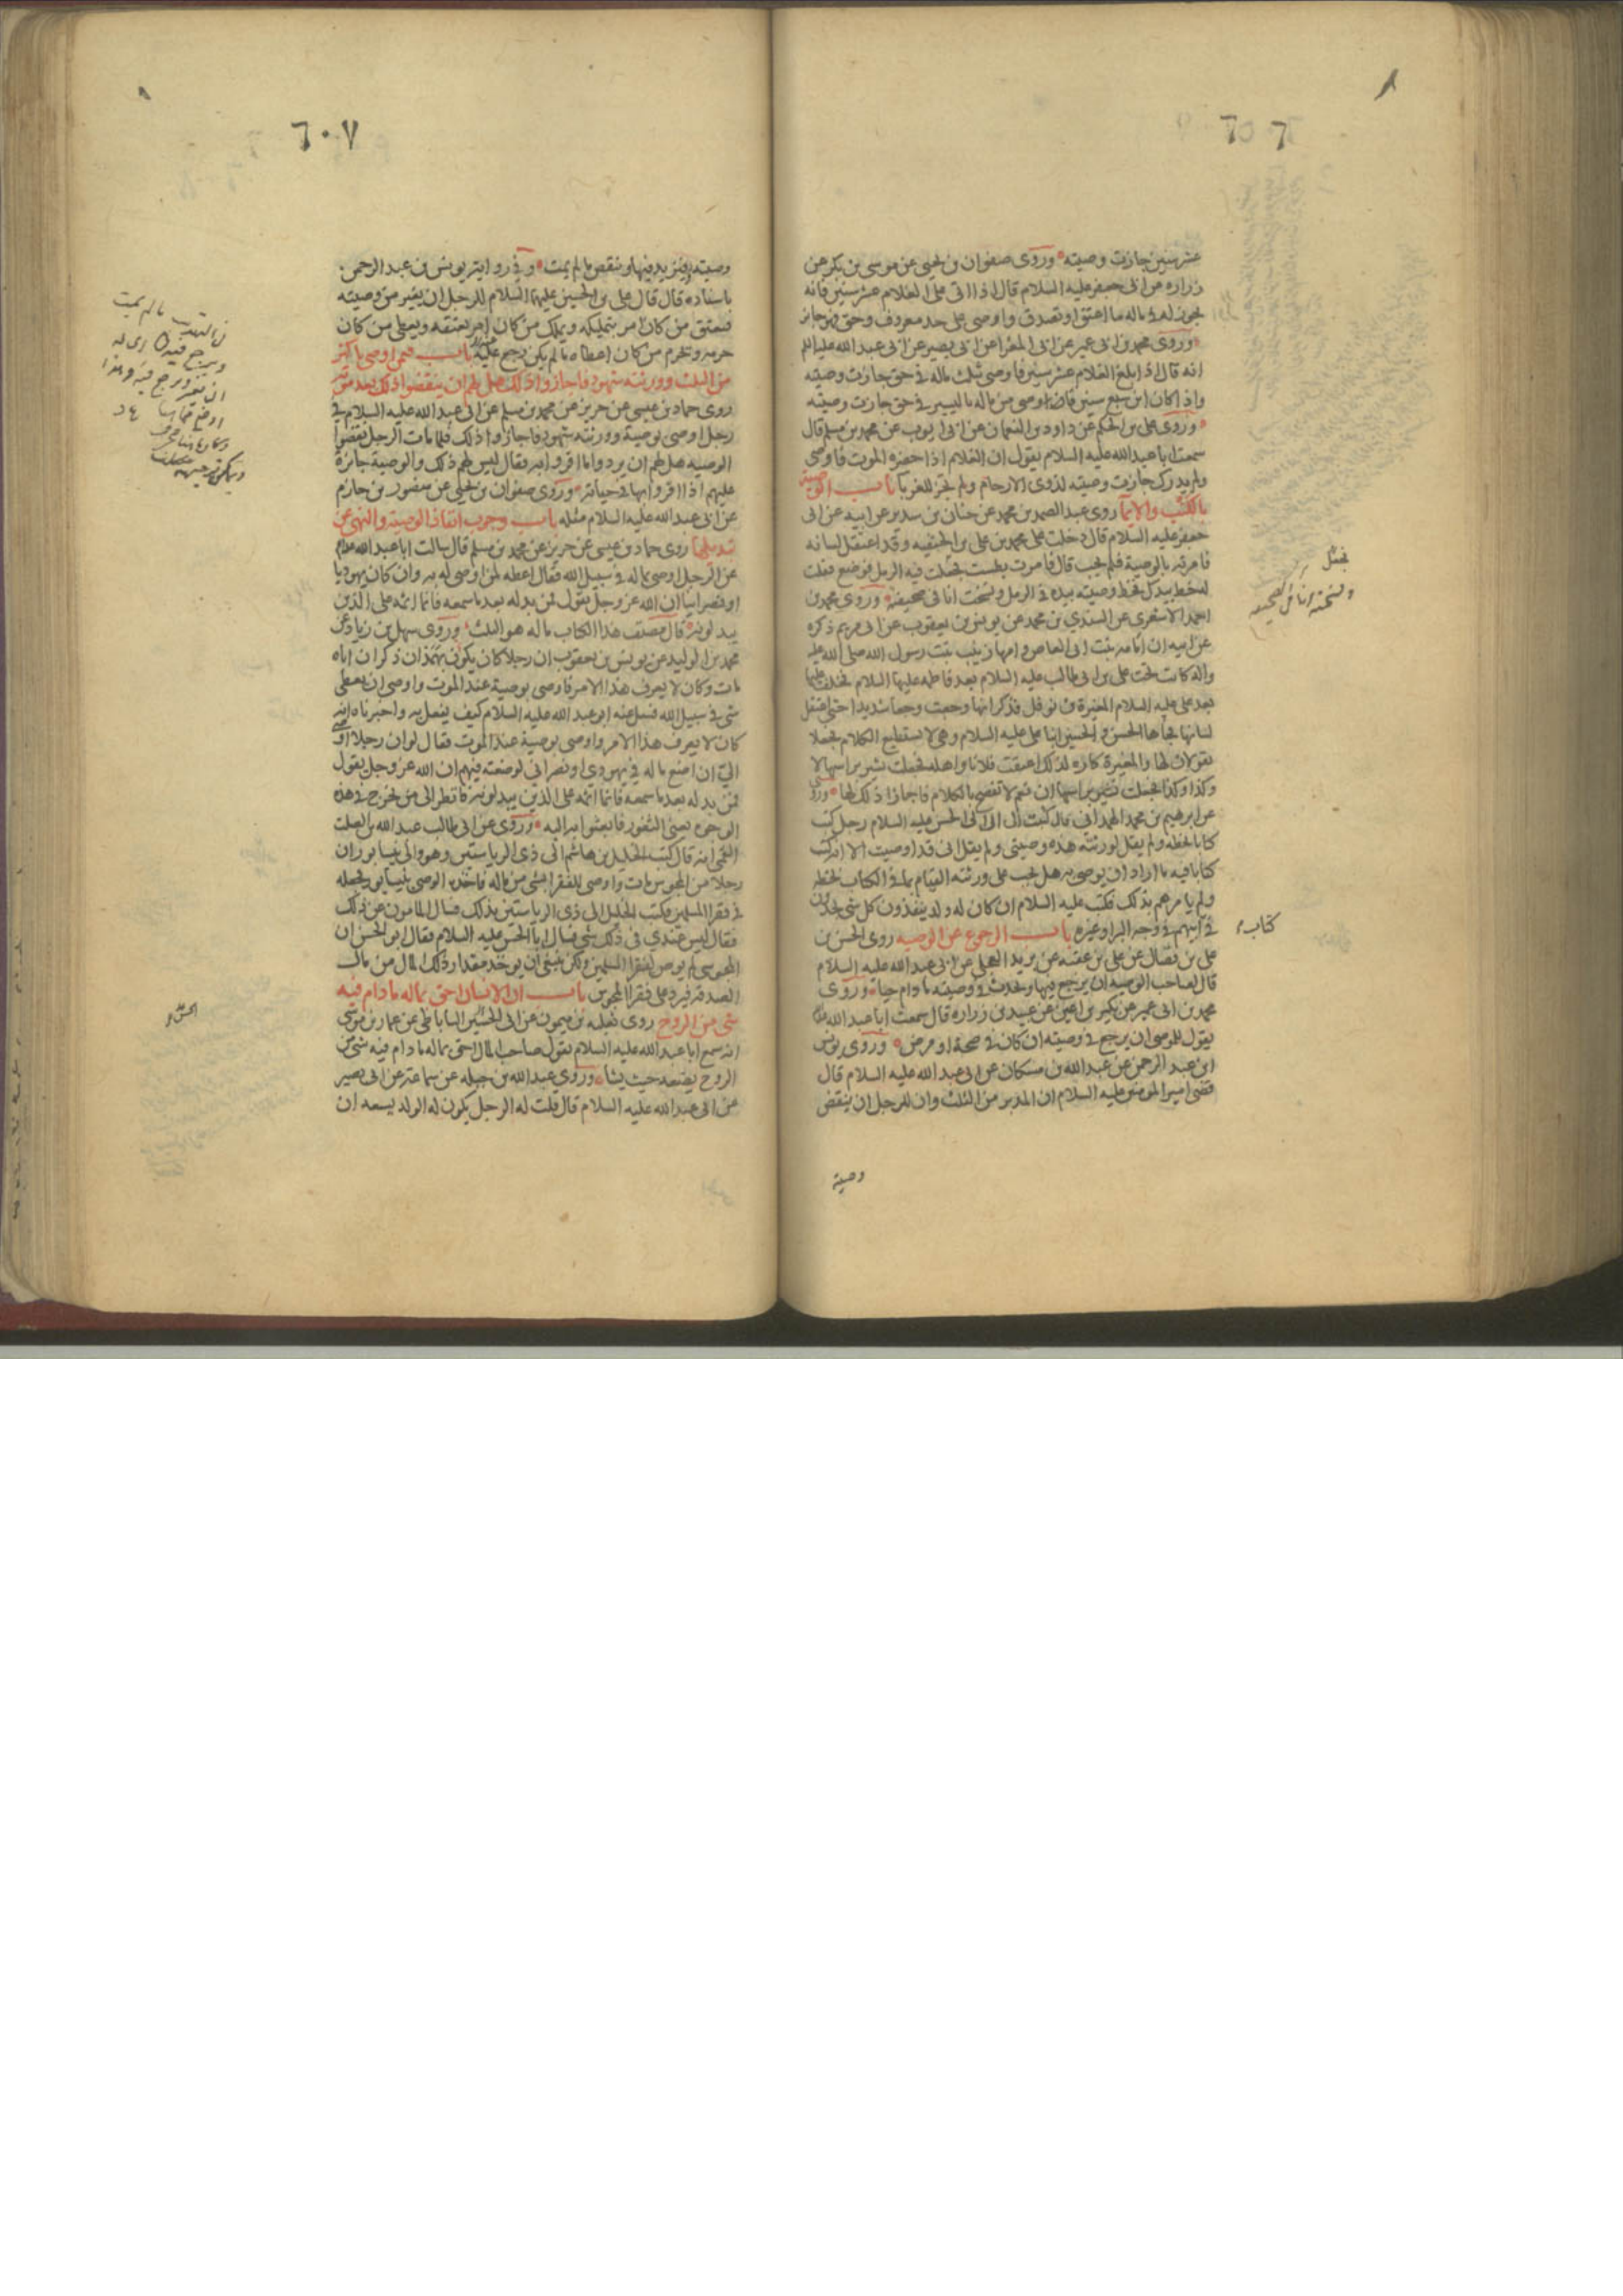 ٦٠٦
عشر سنين جازت وصيته وروى صفوان بن يحيى عن موسى بن بكر عن
زراره عن ابى جعفر عليه السلام قال اذا اتى على الغلام عشر سنين فانه
يجوز له فى ماله ما اعتق او تصدق واوصى على حد معروف وحق فهو جائز
وروى محمد بن ابى عمير عن ابى المغرا عن ابى بصير عن ابى عبد الله عليه السلم
انه قال اذا بلغ الغلام عشر سنين فاوصى بثلث ماله فى حق جازت وصيته
واذا كان ابن سبع سنين فاوصى من ماله باليسير فى حق جازت وصيته
وروى على بن الحكم عن داود بن النعمان عن ابى ايوب عن محمد بن مسلم قال
سمعت ابا عبد الله عليه السلام يقول ان الغلام اذا حضره الموت فاوصى
ولم يدرك جازت وصيته لذوى الارحام ولم تجز للغربا باب الوصية
بالكتب والايما روى عبد الصمد بن محمد عن حنان بن سدير عن ابيه عن ابى
جعفر عليه السلام قال دخلت على محمد بن على بن الحنفيه وقد اعتقل لسانه
فامرته بالوصية فلم يجب قال فامرت بطست فجعلت فيه الرمل فوضع فقلت
له خط بيدك فخط وصيته بيده فى الرمل ونسخت انا فى صحيفة وروى محمد بن
احمد الاشعرى عن السندي بن محمد عن يونس بن يعقوب عن ابى مريم ذكره
عن ابيه ان امامه بنت ابى العاص وامها زينب بنت رسول الله صلى الله عليه
واله كانت تحت على بن ابى طالب عليه السلام بعد فاطمه عليها السلام فخلف عليها
بعد على عليه السلام المغيرة بن نوفل فذكر انها وجعت وجعا شديدا حتى اعتقل
لسانها فجاءها الحسن والحسين ابنا على عليه السلام وهى لا تستطيع الكلام فجعلا
يقولان لها والمغيرة كاره لذلك اعتقت فلانا واهله فجعلت تشير براسها لا
وكذا وكذا فجعلت تشير براسها ان نعم لا تفصح بالكلام فاجازا ذلك لها وروى
عن ابرهيم بن محمد الهمدانى قال كتبت الى ابى الحسن عليه السلام رجل كتب
كتابا بخطه ولم يقل لورثته هذه وصيتى ولم يقل انى قد اوصيت الا انه كتب
كتابا فيه ما اراد ان يوصى به هل يجب على ورثته القيام بما فى الكتاب بخطه
ولم يامرهم بذلك فكتب عليه السلام ان كان له ولد ينفذون كل شئ يجدون
فى ابيهم فى وجه البر اوغيره باب الرجوع عن الوصيه روى الحسن بن
على بن فضال عن على بن عقبه عن بريد العجلى عن ابى عبد الله عليه السلام
قال لصاحب الوصيه ان يرجع فيها ويحدث فى وصيته ما دام حيا وروى
محمد بن ابى عمير عن بكير بن اعين عن عبيد بن زراره قال سمعت ابا عبد الله
يقول للموصى ان يرجع فى وصيته ان كان فى صحة او مرض وروى يونس
ابن عبد الرحمن عن عبد الله بن مسكان عن ابى عبد الله عليه السلام قال
قضى امير المومنين عليه السلام ان المدبر من الثلث وان للرجل ان ينقض
وصية
فجعل
ونسخته انا فى صحيفه
كتاب
٦٠٧
وصيته فيزيد فيها وينقص ما لم يمت وفى رواية يونس بن عبد الرحمن
باسناده قال قال على بن الحسين عليهما السلام للرجل ان يغير من وصيته
فيعتق من كان امر بتمليكه ويملك من كان امر بعتقه ويعطى من كان
حرمه ويحرم من كان اعطاه ما لم يكن رجع عليه باب فيمن اوصى باكثر
من الثلث وورثته شهود فاجازوا ذلك هل لهم ان ينقضوا ذلك بعد موته
روى حماد بن عيسى عن حريز عن محمد بن مسلم عن ابى عبد الله عليه السلام فى
رجل اوصى بوصية وورثته شهود فاجازوا ذلك فلما مات الرجل نقضوا
الوصيه هل لهم ان يردوا ما اقروا به فقال ليس لهم ذلك والوصية جائزة
عليهم اذا اقروا بها فى حياته وروى صفوان بن يحيى عن منصور بن حازم
عن ابى عبد الله عليه السلام مثله باب وجوب انفاذ الوصية والنهى عن
تبديلها روى حماد بن عيسى عن حريز عن محمد بن مسلم قال سالت ابا عبد الله
عن الرجل اوصى بماله فى سبيل الله فقال اعطه لمن اوصى له به وان كان يهوديا
او نصرانيا ان الله عز وجل يقول فمن بدله بعد ما سمعه فانما اثمه على الذين
يبدلونه قال مصنف هذا الكتاب ماله هو الثلث وروى سهل بن زياد عن
محمد بن الوليد عن يونس بن يعقوب ان رجلا كان يكون بهمذان ذكر ان اباه
مات وكان لا يعرف هذا الامر فاوصى بوصية عند الموت واوصى ان يعطى
شئ فى سبيل الله فسئل عنه ابو عبد الله عليه السلام كيف يفعل به واخبرناه انه
كان لا يعرف هذا الامر واوصى بوصية عند الموت فقال لو ان رجلا اوصى
الىّ ان اضع ماله فى يهودى او نصرانى لوضعته فيهم ان الله عز وجل يقول
فمن بدله بعد ما سمعه فانما اثمه على الذين يبدلونه فانظر الى من يخرج فى هذه
الوجوه يعنى الثغور فابعثوا به اليه وروى عن ابى طالب عبد الله بن الصلت
القمى انه قال كتب الخليل بن هاشم الى ذى الرياستين وهو والى نيسابور ان
رجلا من المجوس مات واوصى للفقرا بشئ من ماله فاخذه الوصى بنيسابور فجعله
فى فقرا المسلمين فكتب الخليل الى ذى الرياستين بذلك فسال المامون عن ذلك
فقال ليس عندي فى ذلك شئ فسال ابا الحسن عليه السلام فقال ابو الحسن ان
المجوسى لم يوص لفقرا المسلمين ولكن ينبغى ان يوخذ مقدار ذلك المال من مال
الصدقه فيرد على فقرا المجوس باب ان الانسان احق بماله ما دام فيه
شئ من الروح روى ثعلبه بن ميمون عن ابى الحسين الساباطى عن عمار بن موسى
انه سمع ابا عبد الله عليه السلام يقول صاحب المال احق بماله ما دام فيه شئ من
الروح يضعه حيث يشا وروى عبد الله بن جبله عن سماعة عن ابى بصير
عن ابى عبد الله عليه السلام قال قلت له الرجل يكون له الولد يسعه ان
فى التهذيب ما لم يمت
ويرجع فيه
الحسن